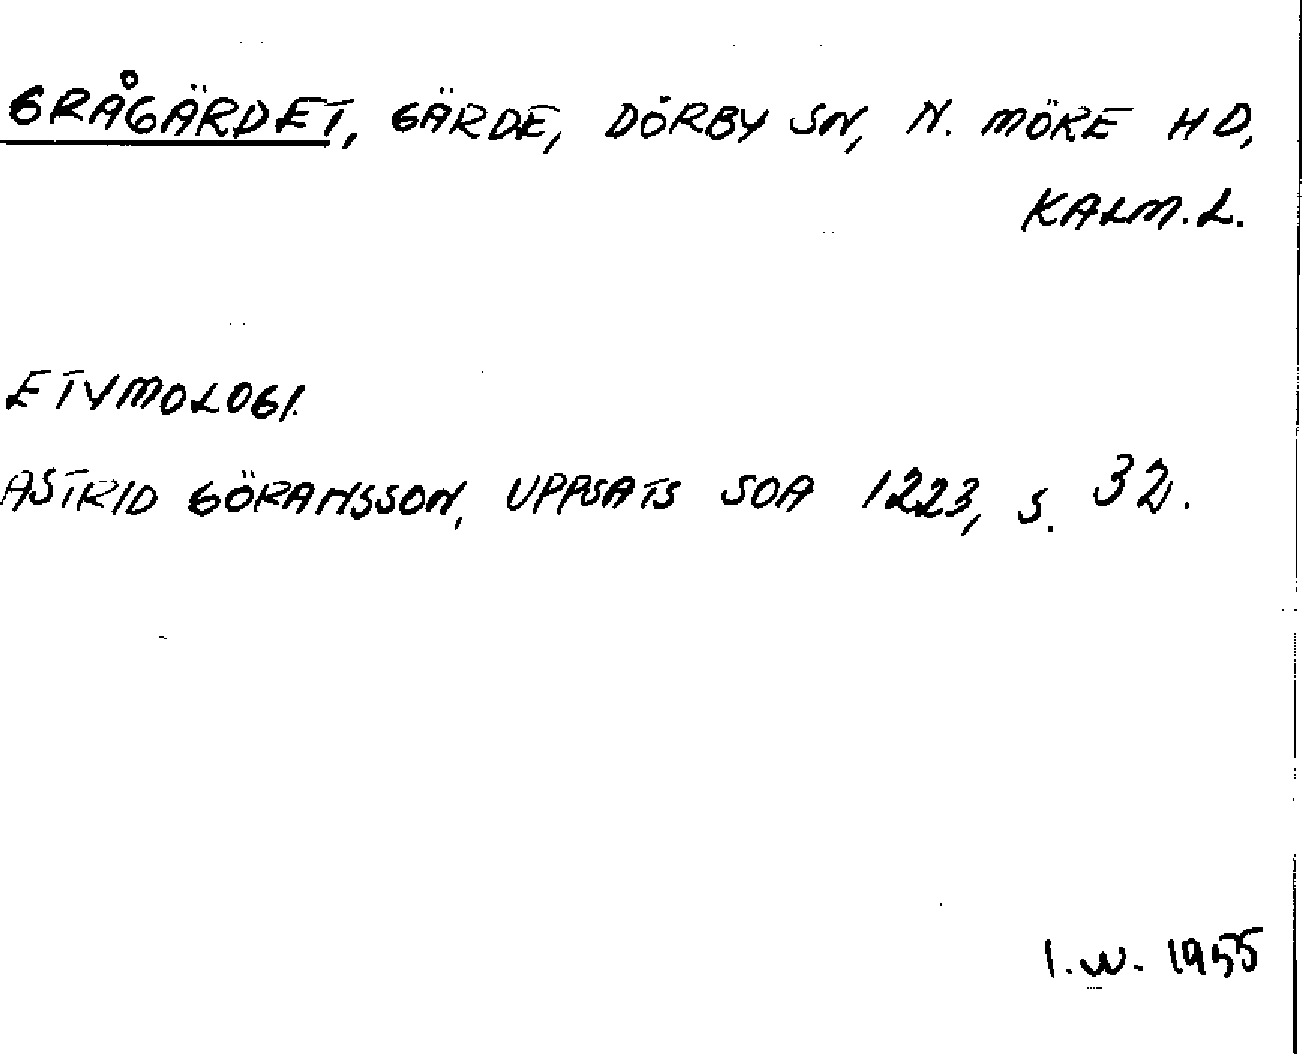 GRÅGÄRDET, GÄRDE, DÖRBY SN, N. MÖRE HD,
KALM. L.
ETYMOLOGI.
ASTRID GÖRANSSON, UPPSATS SOA 1223, S. 32.
I.W. 1955